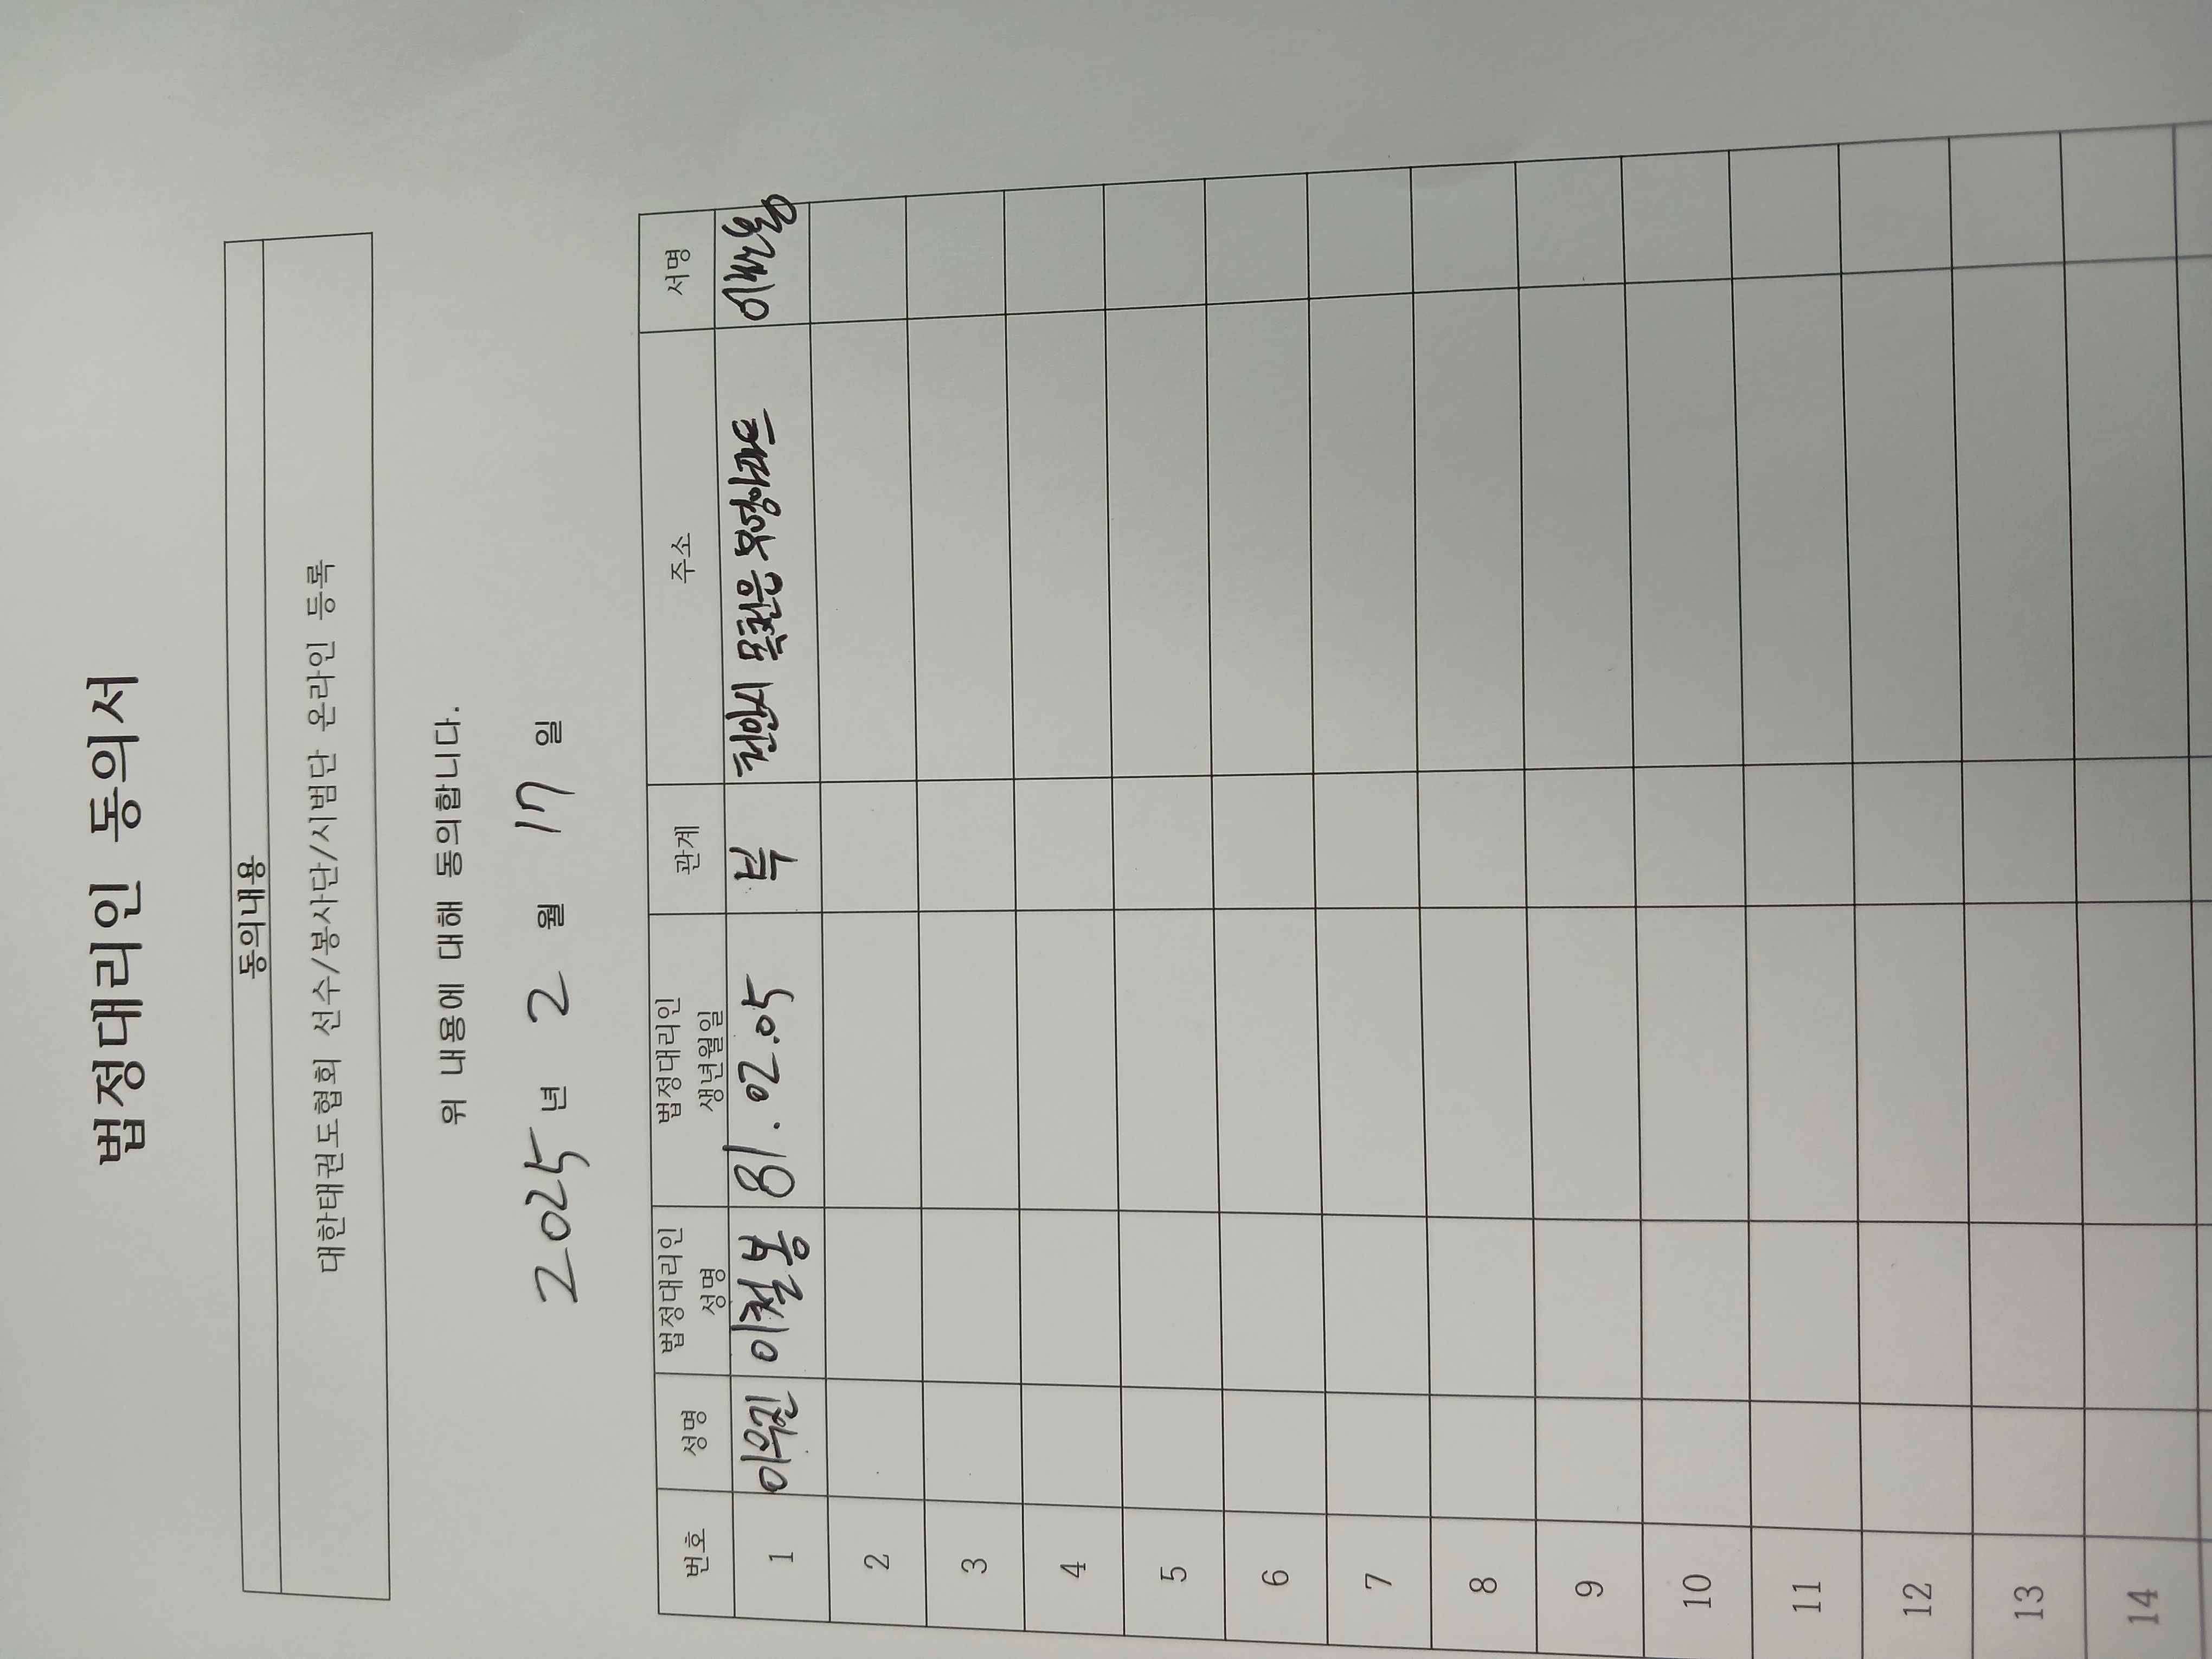 법정대리인 동의서
동의내용
대한태권도협회 선수/봉사단/시범단 온라인 등록
위 내용에 대해 동의합니다.
2025 년 2 월 17 일
번호 성명 법정대리인 성명 법정대리인 생년월일 관계 주소 서명
1 이우진 이철봉 81.02.05 부 천안시 목천읍 부영아파트
2
3
4
5
6
7
8
9
10
11
12
13
14